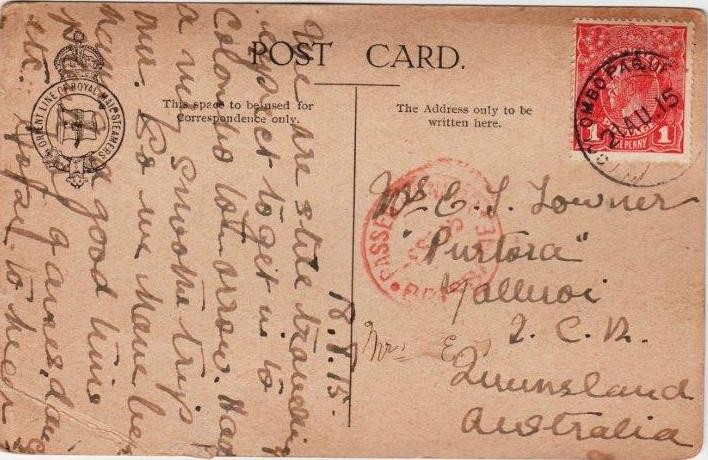 POST CARD.
ORIENT LINE OF ROYAL MAIL STEAMERS
This space to be used for
Correspondence only.
The Address only to be
written here.
18.8.15.
We are still traveling
expect to get in to
Colombo tomorrow. Had
a very smooth trip
so we have been
having a good time
games, dancing
etc.
COLOMBO PAQUEBOT
28 AU 15
POSTAGE
1 PENNY 1
PASSED CENSOR
Mrs E. J. Towner
"Purtora"
Q.C.R.
Mr E
Queensland
Australia